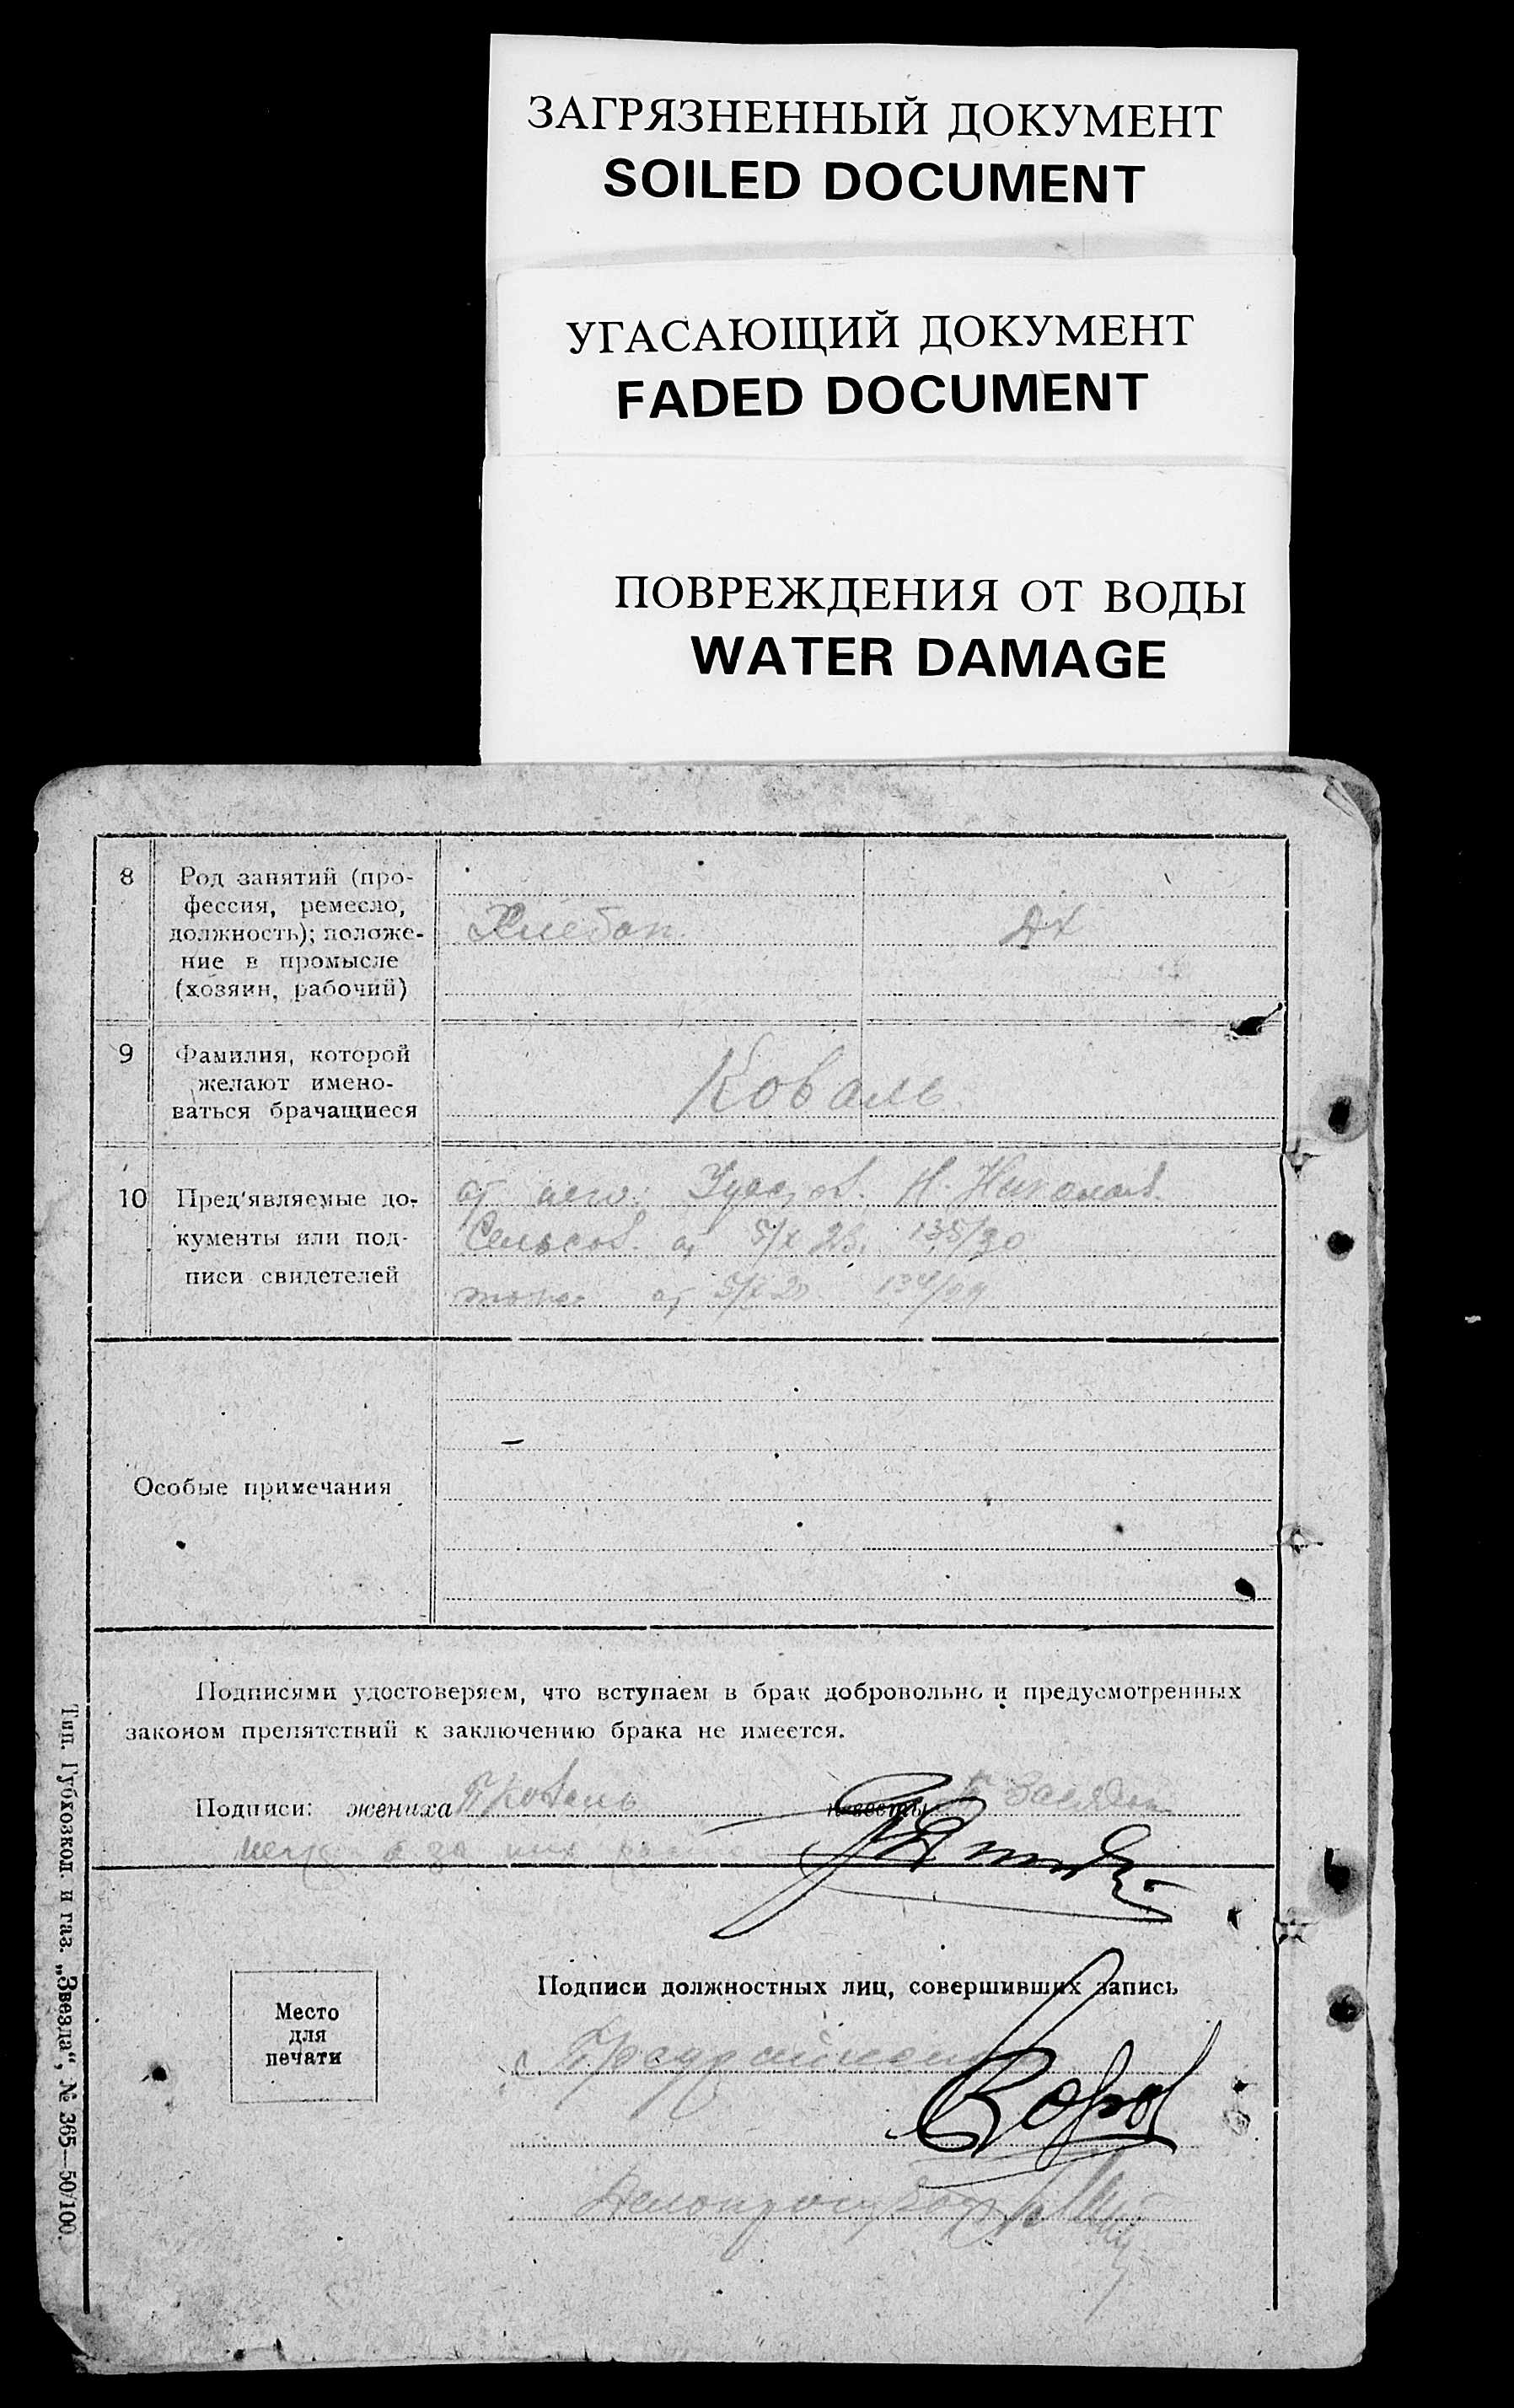 ЗАГРЯЗНЕННЫЙ ДОКУМЕНТ
SOILED DOCUMENT
УГАСАЮЩИЙ ДОКУМЕНТ
FADED DOCUMENT
ПОВРЕЖДЕНИЯ ОТ ВОДЫ
WATER DAMAGE
8
Род занятий (про-
фессия, ремесло,
должность); положе-
ние в промысле
(хозяин, рабочий)
Хлебоп.
дх
9
Фамилия, которой
желают имено-
ваться брачащиеся
Коваль
10
Пред'являемые до-
кументы или под-
писи свидетелей
от Н.
Сельсов. от 5/X 135/30
тоже от 5/X
Особые примечания
Подписями удостоверяем, что вступаем в брак добровольно и предусмотренных
законом препятствий к заключению брака не имеется.
Подписи: жениха невесты
за них
Место
для
печати
Подписи должностных лиц, совершивших запись
Тип. Губхозкол. и газ. „Звезда“, № 365—50/100.